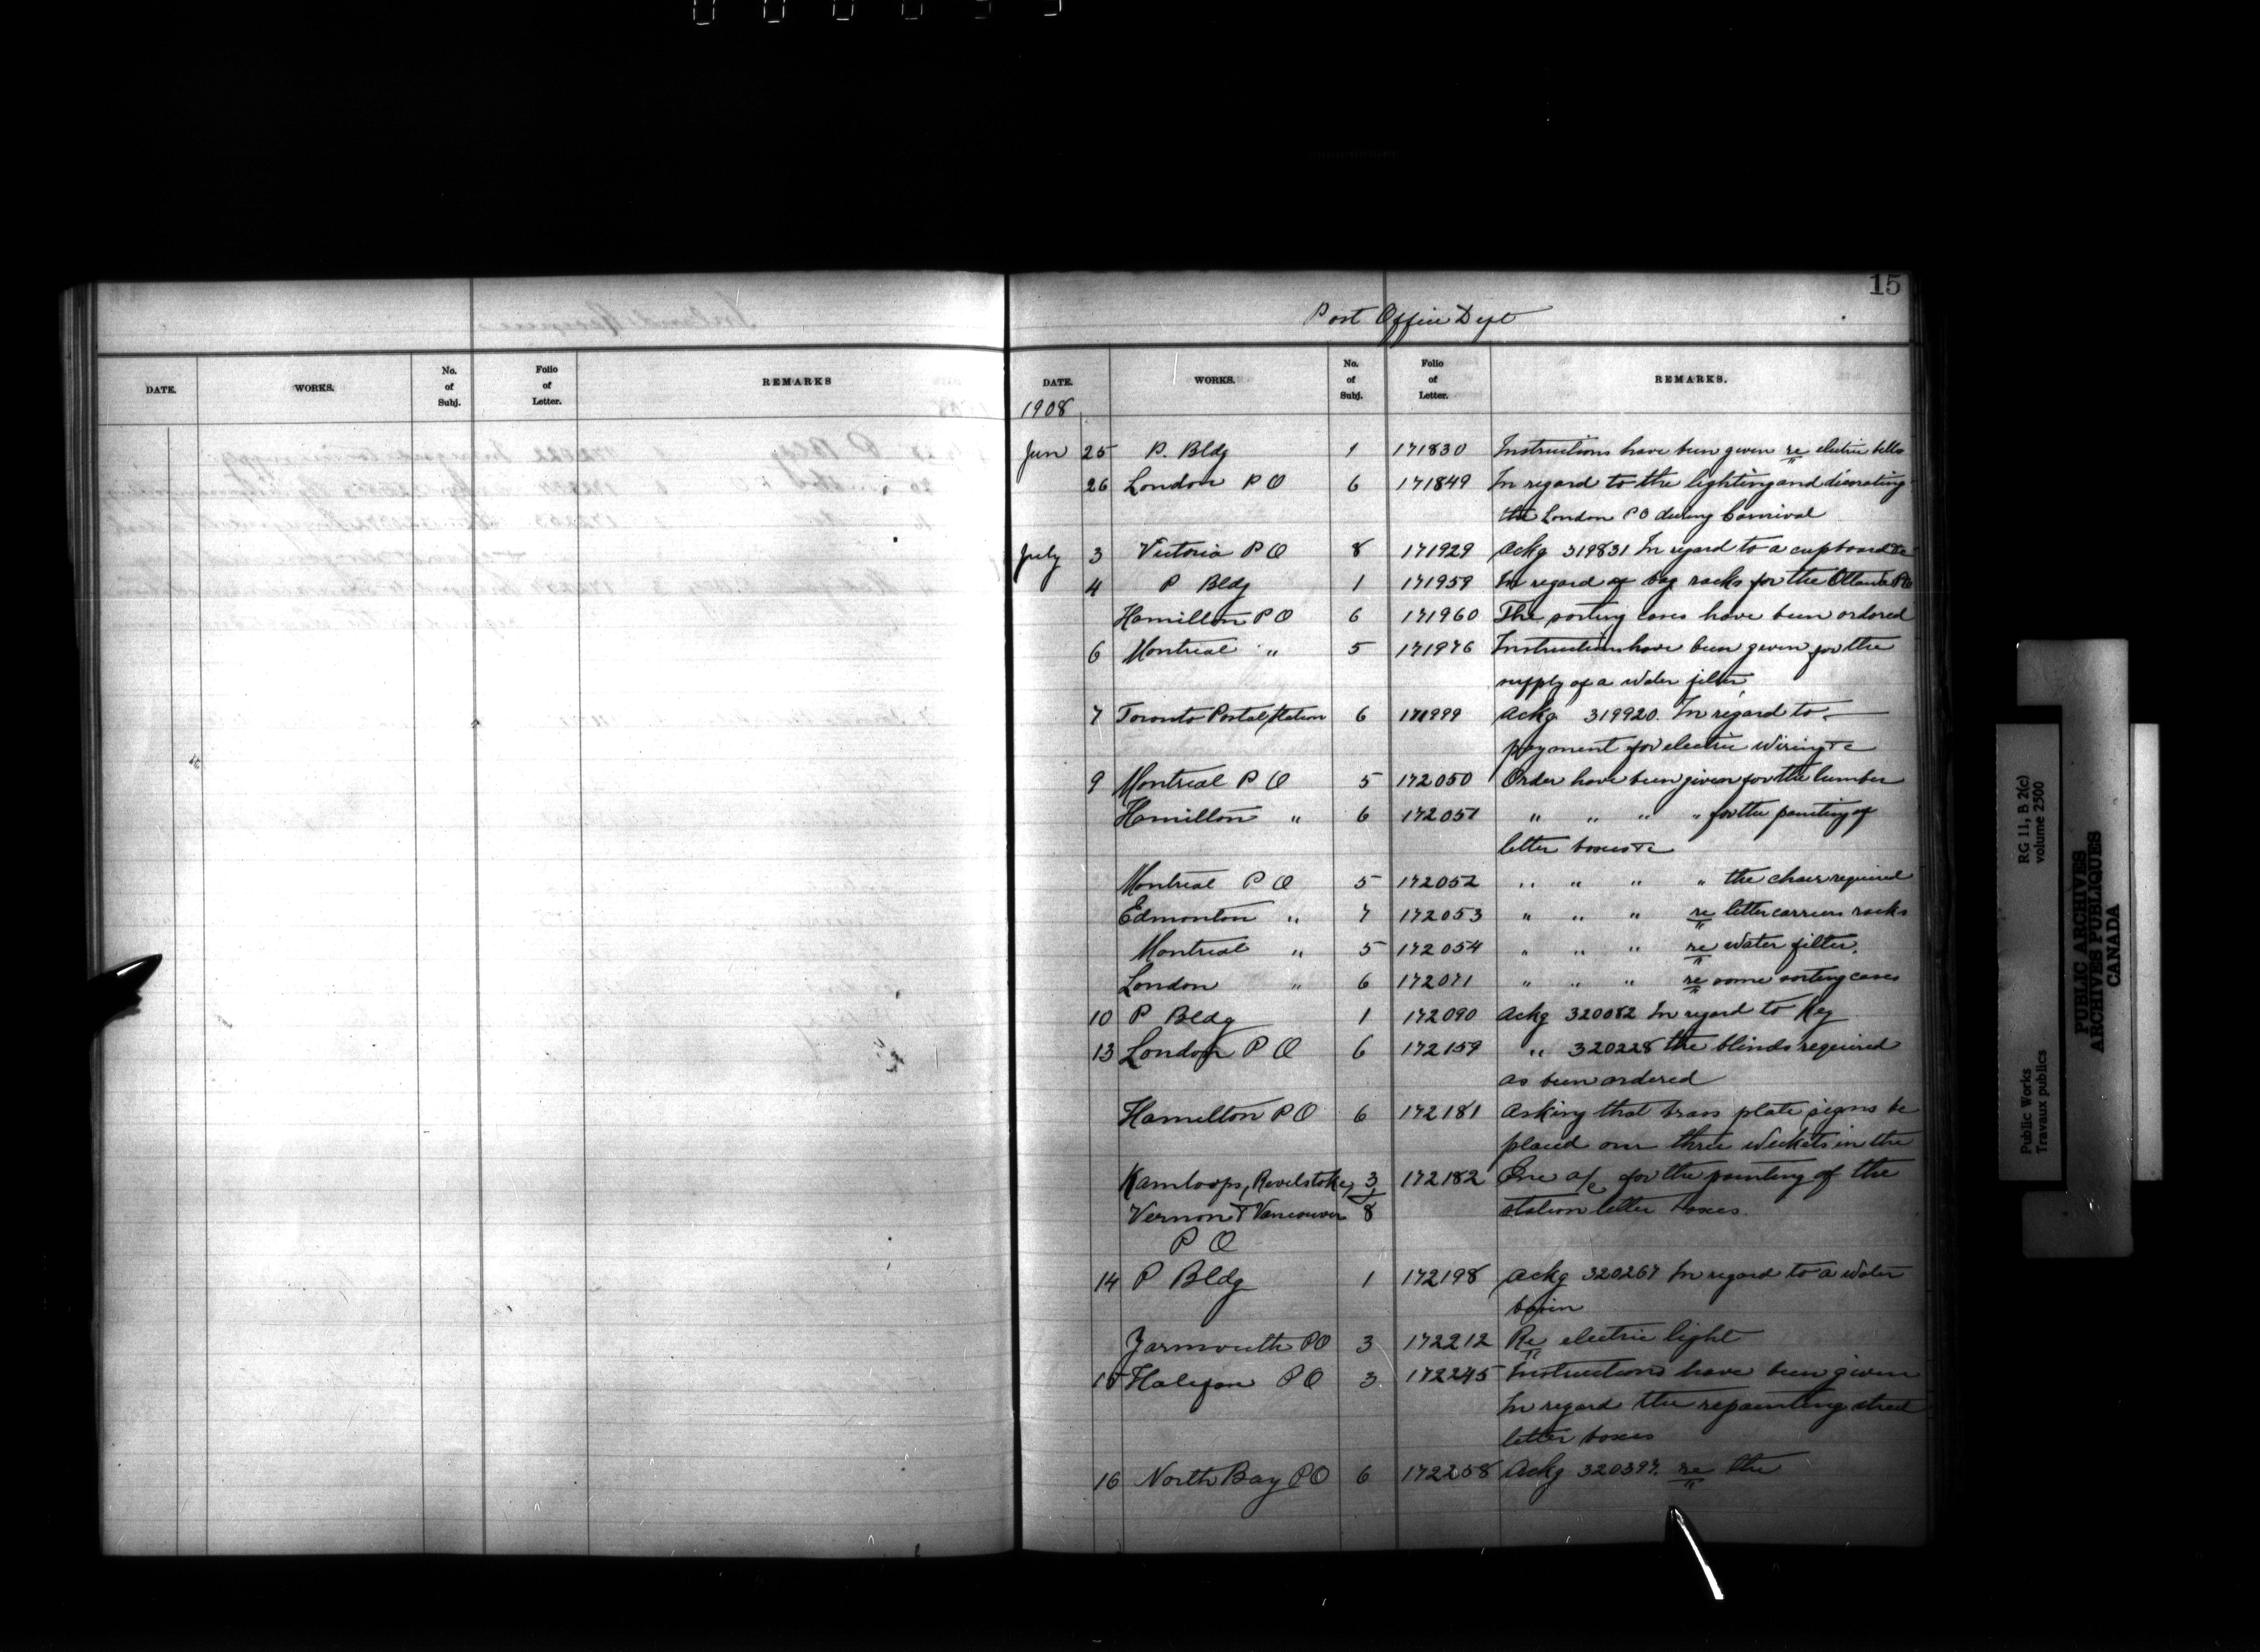 15
Post Office Dept
DATE. WORKS. No. of Subj. Folio of Letter. REMARKS
DATE. WORKS. No. of Subj. Folio of Letter. REMARKS.
1908
Jun 25 P. Bldg 1 171830 Instructions have been given re electric bells
26 London P O 6 171849 In regard to the lighting and decorating
the London P O during Carnival
July 3 Victoria P O 8 171929 Ackg 319831 In regard to a cupboard &c
4 P Bldg 1 171959 In regard of bag racks for the Ottawa P O
Hamilton P O 6 171960 The sorting cases have been ordered
6 Montreal " 5 171976 Instructions have been given for the
supply of a water filter
7 Toronto Postal Station 6 171999 Ackg 319920. In regard to
payment for electric wiring &c
9 Montreal P O 5 172050 Order have been given for the lumber
Hamilton " 6 172051 " " " " for the painting of
letter boxes &c
Montreal P O 5 172052 " " " " the chair required
Edmonton " 7 172053 " " " re letter carriers racks
Montreal " 5 172054 " " " re water filter.
London " 6 172071 " " " re some sorting cases
10 P Bldg 1 172090 Ackg 320082 In regard to Key
13 London P O 6 172159 " 320228 the blinds required
as been ordered
Hamilton P O 6 172181 Asking that brass plate signs be
placed over three wickets in the
Kamloops, Revelstoke, 3 172182 One a/c for the painting of the
Vernon & Vancouver & 8 station letter boxes.
P O
14 P Bldg 1 172198 Ackg 320267 In regard to a water
basin
Yarmouth P O 3 172212 Re electric light
15 Halifax P O 3 172245 Instructions have been given
In regard the repainting street
letter boxes
16 North Bay P O 6 172258 Ackg 320397. re the
Public Works RG 11, B 2(c)
Travaux publics volume 2500
PUBLIC ARCHIVES
ARCHIVES PUBLIQUES
CANADA